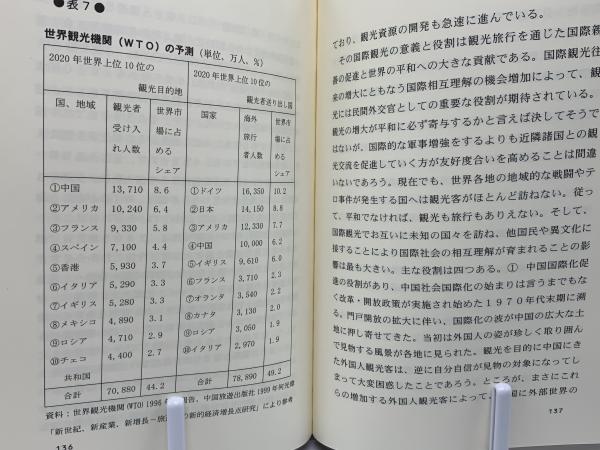 ●表７●
世界観光機関（ＷＴＯ）の予測（単位、万人、％）
2020年世界上位10位の 2020年世界上位10位の
観光目的地 観光者送り出し国
国、地域 観光者受け入れ人数 世界市場に占めるシェア 国家 海外旅行者人数 世界市場に占めるシェア
①中国 13,710 8.6 ①ドイツ 16,350 10.2
②アメリカ 10,240 6.4 ②日本 14,150 8.8
③フランス 9,330 5.8 ③アメリカ 12,330 7.7
④スペイン 7,100 4.4 ④中国 10,000 6.2
⑤香港 5,930 3.7 ⑤イギリス 9,610 6.0
⑥イタリア 5,290 3.3 ⑥フランス 3,710 2.3
⑦イギリス 5,280 3.3 ⑦オランダ 3,540 2.2
⑧メキシコ 4,890 3.1 ⑧カナダ 3,130 2.0
⑨ロシア 4,710 2.9 ⑨ロシア 3,050 1.9
⑩チェコ 4,400 2.7 ⑩イタリア 2,970 1.9
共和国
合計 70,880 44.2 合計 78,890 49.2
資料：世界観光機関(WTO)1998年 報告、中国旅遊出版社1999年何光暐
「新世紀、新産業、新増長－旅 の新的経済増長点研究」により参考
136
ており、観光資源の開発も急速に進んでいる。
その国際観光の意義と役割は観光旅行を通じた国際親
善の促進と世界の平和への大きな貢献である。国際観光往
来の増大にともなう国際相互理解の機会増加によって、観
光には民間外交官としての重要な役割が期待されている。
観光の増大が平和に必ず寄与するかと言えば決してそうで
はないが、国際的な軍事増強をするよりも近隣諸国との観
光交流を促進していく方が友好度合いを高めることは間違
いないであろう。現在でも、世界各地の地域的な戦闘やテ
ロ事件が発生する国へは観光客がほとんど訪ねない。従っ
て、平和でなければ、観光も旅行もありえない。そして、
国際観光でお互いに未知の国々を訪ね、他国民や異文化に
接することにより国際社会の相互理解が育まれることの影
響は最も大きい。主な役割は四つある。① 中国国際化促
進の役割があり、中国社会国際化の始まりは言うまでもな
く改革・開放政策が実施され始めた１９７０年代末期に溯
る。門戸開放の拡大に伴い、国際化の波が中国の広大な土
地に押し寄せてきた。当初は外国人の姿が珍しく取り囲ん
で見物する風景が各地に見られた。観光を目的に中国にき
た外国人観光客は、逆に自分自信が見物の対象になってし
まって大変困惑したことであろう。ところが、まさにこれ
らの増加する外国人観光客によって、 国に外部世界の
137